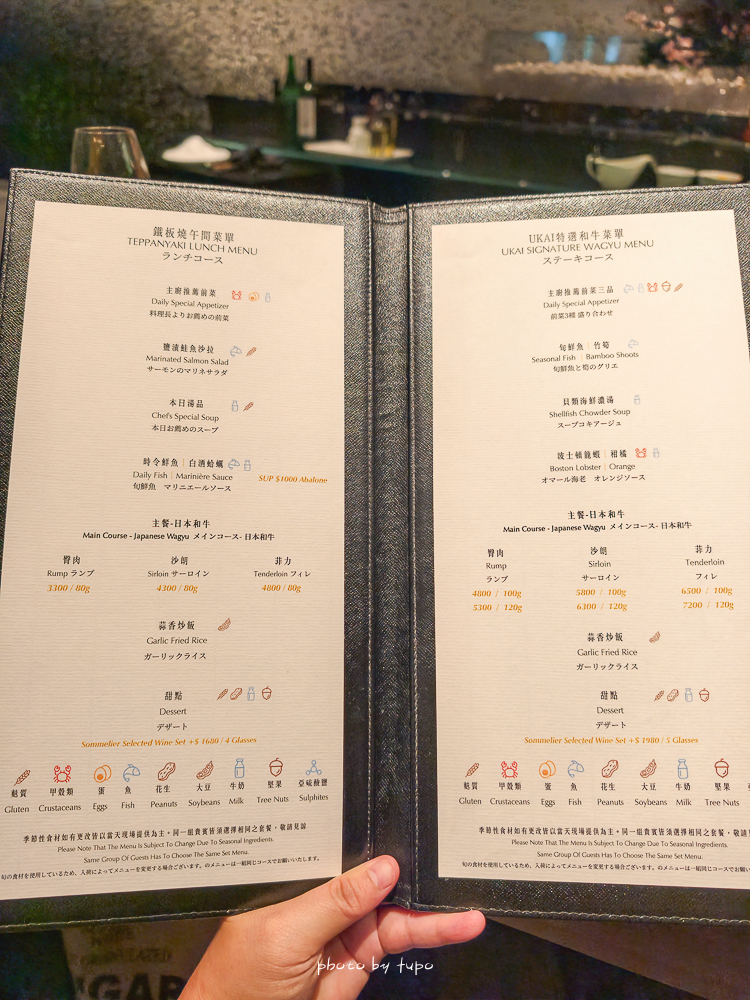 鐵板燒午間菜單
TEPPANYAKI LUNCH MENU
ランチコース
主廚推薦前菜
Daily Special Appetizer
料理長よりお薦めの前菜
鹽漬鮭魚沙拉
Marinated Salmon Salad
サーモンのマリネサラダ
本日湯品
Chef's Special Soup
本日お薦めのスープ
時令鮮魚｜白酒蛤蠣
Daily Fish | Marinière Sauce
旬鮮魚 マリニエールソース
SUP $1000 Abalone
主餐-日本和牛
Main Course - Japanese Wagyu メインコース- 日本和牛
臀肉 沙朗 菲力
Rump ランプ Sirloin サーロイン Tenderloin フィレ
3300 / 80g 4300 / 80g 4800 / 80g
蒜香炒飯
Garlic Fried Rice
ガーリックライス
甜點
Dessert
デザート
Sommelier Selected Wine Set +$ 1680 / 4 Glasses
麩質 甲殼類 蛋 魚 花生 大豆 牛奶 堅果 亞硫酸鹽
Gluten Crustaceans Eggs Fish Peanuts Soybeans Milk Tree Nuts Sulphites
季節性食材如有更改皆以當天現場提供為主。同一組貴賓皆須選擇相同之套餐，敬請見諒
Please Note That The Menu Is Subject To Change Due To Seasonal Ingredients.
Same Group Of Guests Has To Choose The Same Set Menu.
旬の食材を使用しているため、入荷によってメニューを変更する場合ございます。のメニューは一組同じコースでお願いいたします。
UKAI特選和牛菜單
UKAI SIGNATURE WAGYU MENU
ステーキコース
主廚推薦前菜三品
Daily Special Appetizer
前菜3種 盛り合わせ
旬鮮魚｜竹筍
Seasonal Fish | Bamboo Shoots
旬鮮魚と筍のグリエ
貝類海鮮濃湯
Shellfish Chowder Soup
スープコキアージュ
波士頓龍蝦｜柑橘
Boston Lobster | Orange
オマール海老 オレンジソース
主餐-日本和牛
Main Course - Japanese Wagyu メインコース- 日本和牛
臀肉 沙朗 菲力
Rump Sirloin Tenderloin
ランプ サーロイン フィレ
4800 / 100g 5800 / 100g 6500 / 100g
5300 / 120g 6300 / 120g 7200 / 120g
蒜香炒飯
Garlic Fried Rice
ガーリックライス
甜點
Dessert
デザート
Sommelier Selected Wine Set +$ 1980 / 5 Glasses
麩質 甲殼類 蛋 魚 花生 大豆 牛奶 堅果
Gluten Crustaceans Eggs Fish Peanuts Soybeans Milk Tree Nuts
季節性食材如有更改皆以當天現場提供為主。同一組貴賓皆須選擇相同之套餐，敬請
Please Note That The Menu Is Subject To Change Due To Seasonal Ingredients.
Same Group Of Guests Has To Choose The Same Set Menu.
旬の食材を使用しているため、入荷によってメニューを変更する場合ございます。のメニューは一組同じコースでお願い
photo by tupo